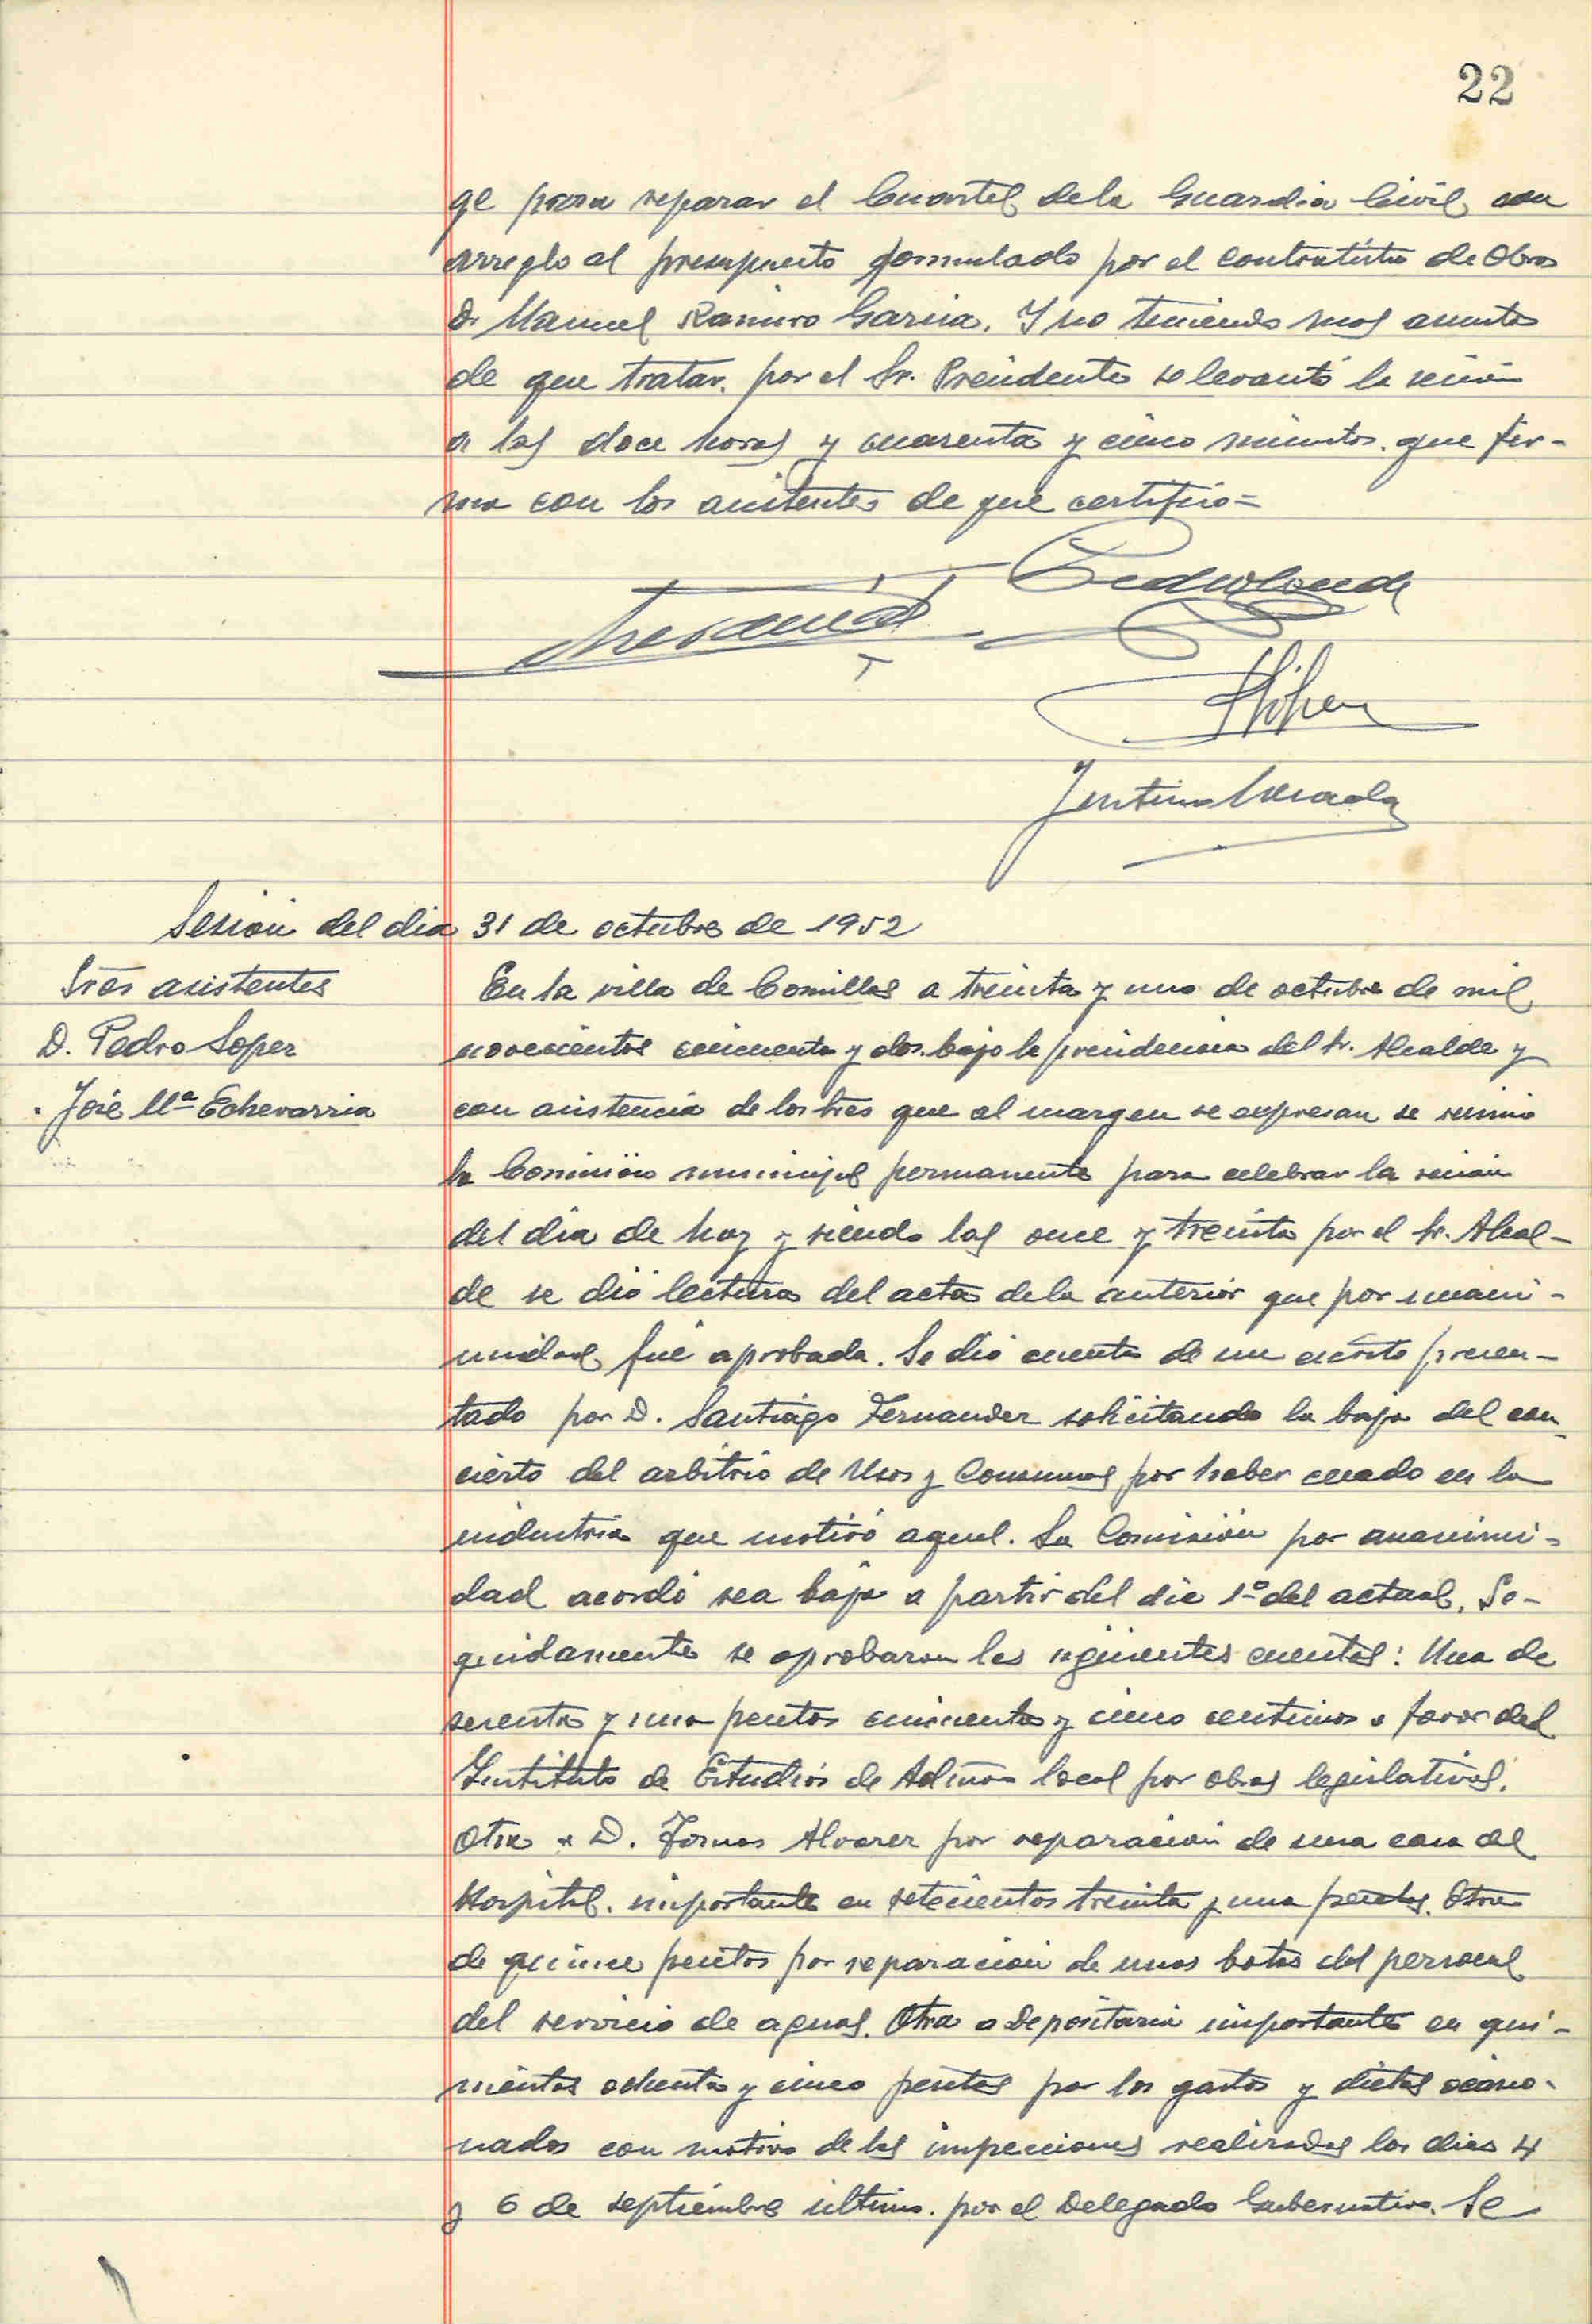 22
ge para reparar el Cuartel de la Guardia Civil con
arreglo al presupuesto formulado por el contratista de Obras
D. Manuel Ramiro Garcia. Y no teniendo mas asuntos
de que tratar. por el Sr. Presidente se levantó la sesión
a las doce horas y cuarenta y cinco minutos. que fir-
ma con los asistentes de que certifico=
Sesion del dia 31 de octubre de 1952
Sres asistentes
D. Pedro Soper
. José Mª Echevarria
En la villa de Comillas a treinta y uno de octubre de mil
novecientos cincuenta y dos. bajo la presidencia del Sr. Alcalde y
con asistencia de los Sres que al margen se expresan se reunio
la Comisión municipal permanente para celebrar la sesión
del dia de hoy y siendo las once y treinta por el Sr. Alcal-
de se dió lectura del acta de la anterior que por unani-
midad fué aprobada. Se dió cuenta de un escrito presen-
tado por D. Santiago Fernandez solicitando la baja del con-
cierto del arbitrio de Usos y Consumos por haber cesado en la
industria que motivó aquel. La Comisión por unanimi-
dad acordó sea baja a partir del dia 1º del actual. Se-
guidamente se aprobaron las siguientes cuentas: Una de
sesenta y una pesetas cincuenta y cinco centimos a favor del
Instituto de Estudios de Admon local por obras legislativas.
Otra a D. Tomas Alvarez por reparación de una casa del
Hospital. importante en setecientos treinta y una pesetas. Otra
de quince pesetas por reparación de unas botas del personal
del servicio de aguas. Otra a Depositaria importante en qui-
nientas ochenta y cinco pesetas por los gastos y dietas ocasio-
nados con motivo de las inspecciones realizadas los dias 4
y 6 de septiembre último. por el Delegado Gubernativo. Se